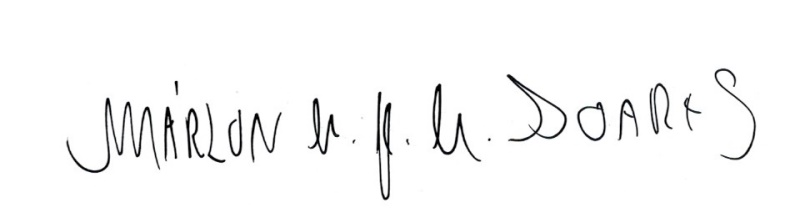 MÁRLON H. H. M. SOARES